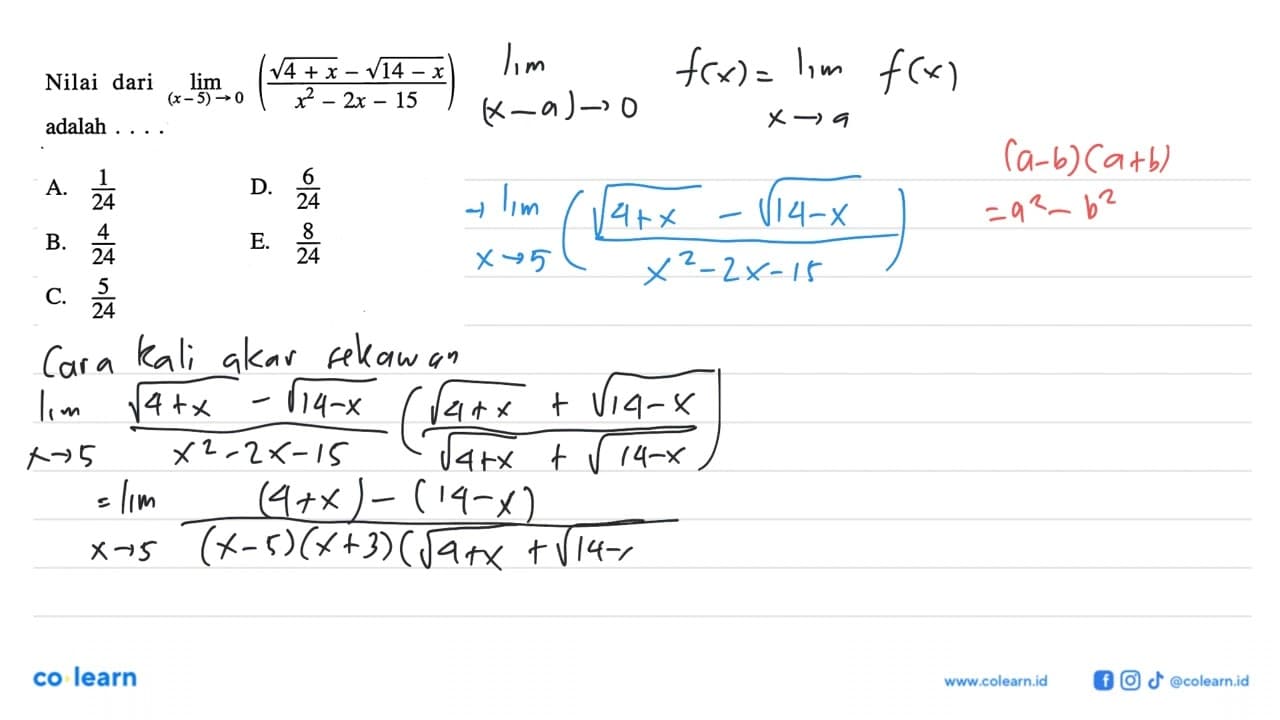 Nilai dari lim (x−5)→0 ((√(4 + x) − √(14 − x))/(x² − 2x − 15))
adalah . . . .
A. 1/24
B. 4/24
C. 5/24
D. 6/24
E. 8/24
lim (x−a)→0 f(x) = lim x→a f(x)
(a−b)(a+b)
=a²−b²
→ lim x→5 ((√(4+x) − √(14−x))/(x²−2x−15))
Cara kali akar sekawan
lim x→5 (√(4+x) − √(14−x))/(x²−2x−15) ((√(4+x) + √(14−x))/(√(4+x) + √(14−x)))
= lim x→5 ((4+x)−(14−x))/((x−5)(x+3)(√(4+x) + √(14−
co learn
www.colearn.id
@colearn.id